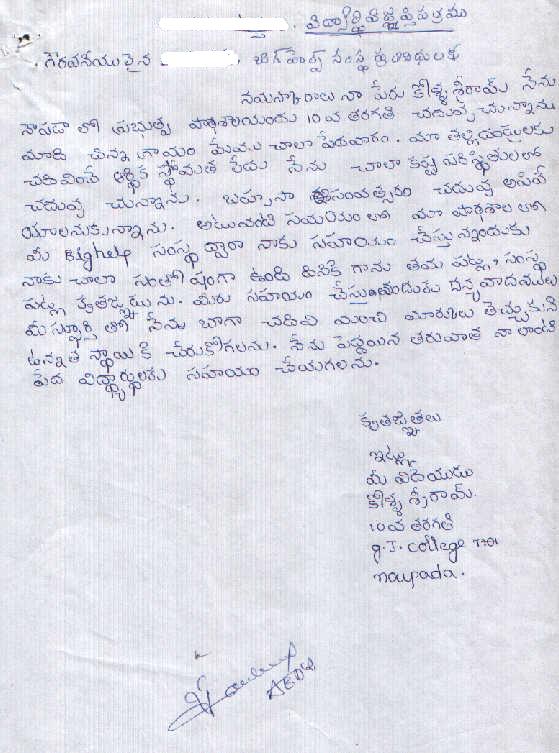 విద్యార్థి విజ్ఞప్తి పత్రము
గౌరవనీయులైన బిగ్ హెల్ప్ సంస్థ ప్రతినిధులకు
నమస్కారాలు నా పేరు కోళ్ళ శ్రీరామ్ నేను
నౌపడా లో ప్రభుత్వ పాఠశాలయందు 10 వ తరగతి చదువు చున్నాను
మాది చిన్న గ్రామం మేము చాలా పేదవారం. మా తల్లిదండ్రులకు
చదివించే ఆర్థిక స్థోమత లేదు నేను చాలా కష్ట పరిస్థితులలో
చదువు చున్నాను. బహుసా ఈ సంవత్సరం చదువు ఆపివే
యాలనుకున్నాను. అటువంటి సమయం లో మా పాఠశాల లో
మీ Bighelp సంస్థ ద్వారా నాకు సహాయం చేస్తు న్నందుకు
నాకు చాలా సంతోషంగా ఉంది దీనికి గాను తమ పట్ల, సంస్థ
పట్ల కృతజ్ఞుడును. మీరు సహాయం చేస్తున్నందుకు ధన్యవాదములు
మీ స్ఫూర్తి తో నేను బాగా చదివి మంచి మార్కులు తెచ్చుకుని
ఉన్నత స్థాయి కి చేరుకోగలను. నేను పెద్దయిన తరువాత నా లాంటి
పేద విద్యార్థులకు సహాయం చేయగలను.
కృతజ్ఞతలు
ఇట్లు
మీ విదేయుడు
కోళ్ళ శ్రీరామ్.
10వ తరగతి
g.J. college
naupada.